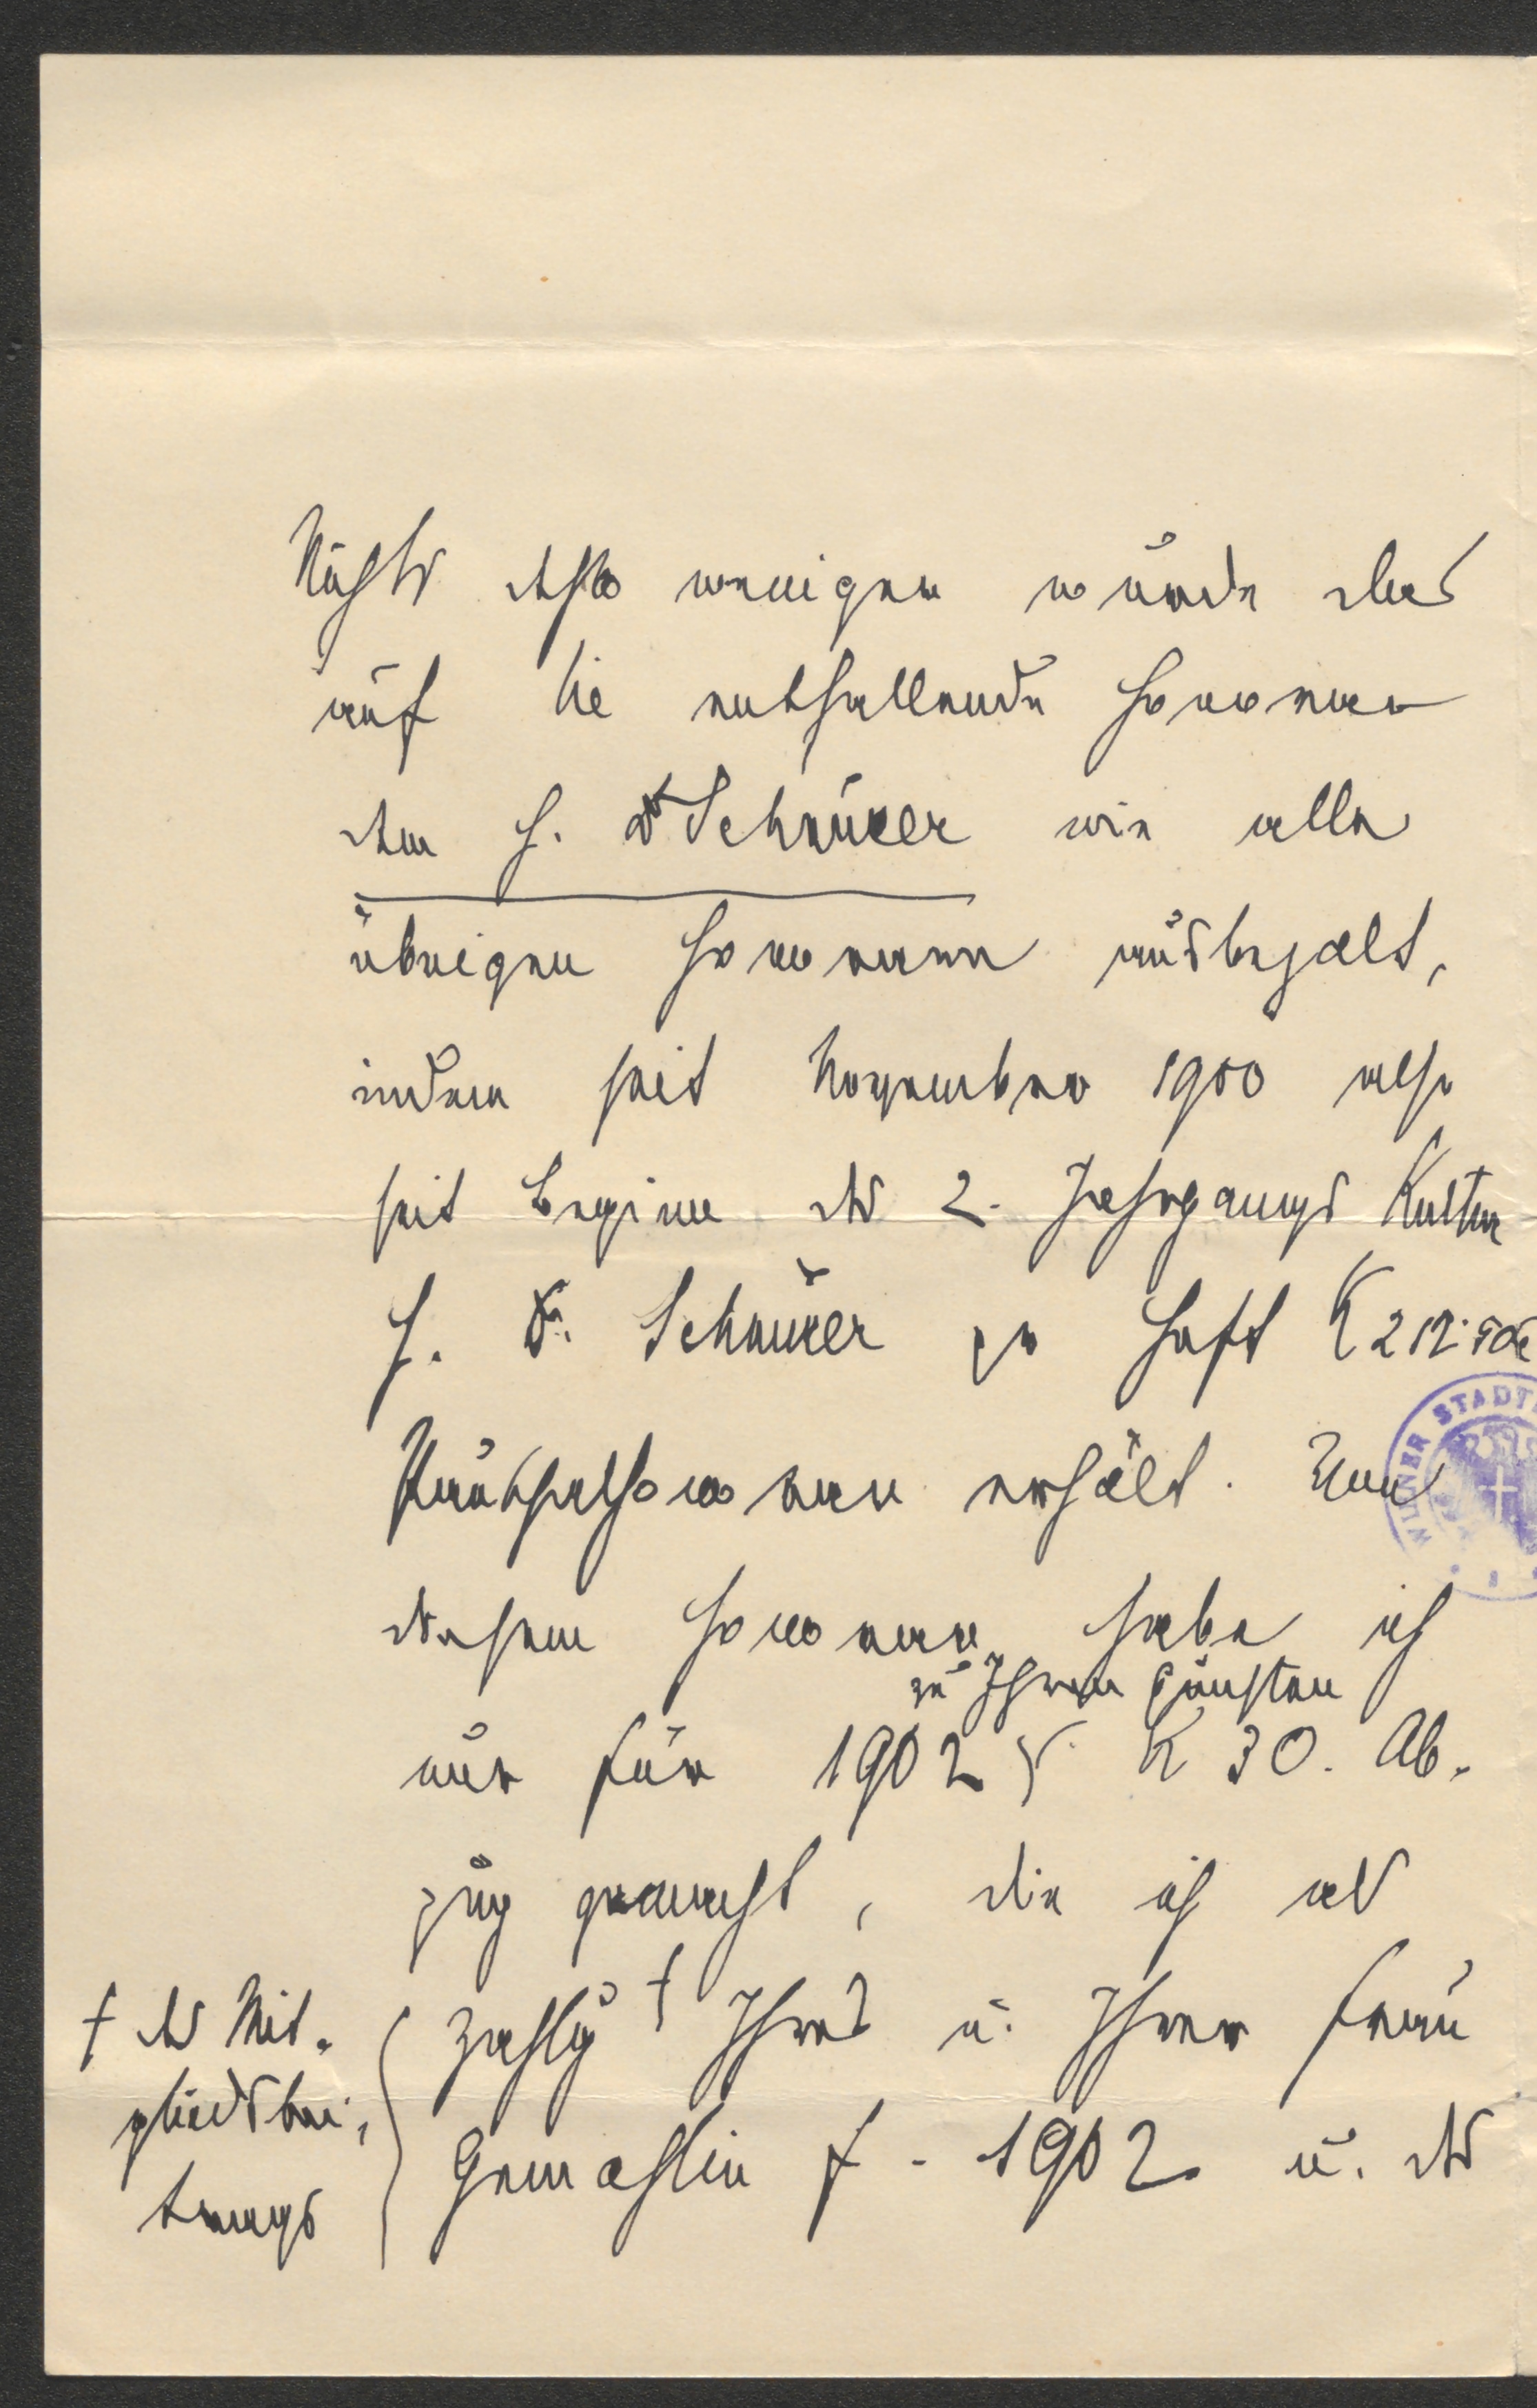 Nichts desto weniger wurde das
auf Sie entfallende Honorar
dem H. Dr Schnürer wie alle
übrigen Honorare ausbezalt,
indem seit November 1900 also
seit Beginn des 2. Jahrgangs Kultur
H. Dr. Schnürer pr Heft K 212·50
Pauschalhonorar erhält. Von
dessem Honorar habe ich
zu Ihren Gunsten
nur für 1902 K 30. Ab-
zug gemacht, die ich als
Zahlg † Ihres u. Ihrer Frau
Gemahlin f. 1902 u. des
† des Mit-
gliedsbei-
trages
WIENER STADT